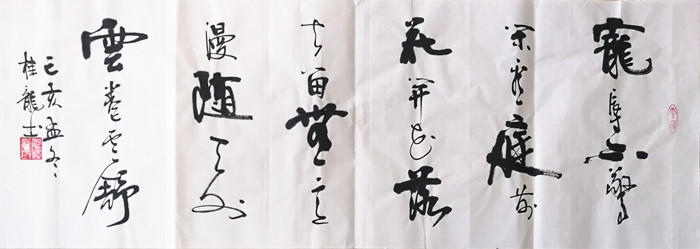 寵辱不驚
閑看庭前
花開花落
去留無意
漫随天外
雲卷云舒
己亥孟冬
桂龍书